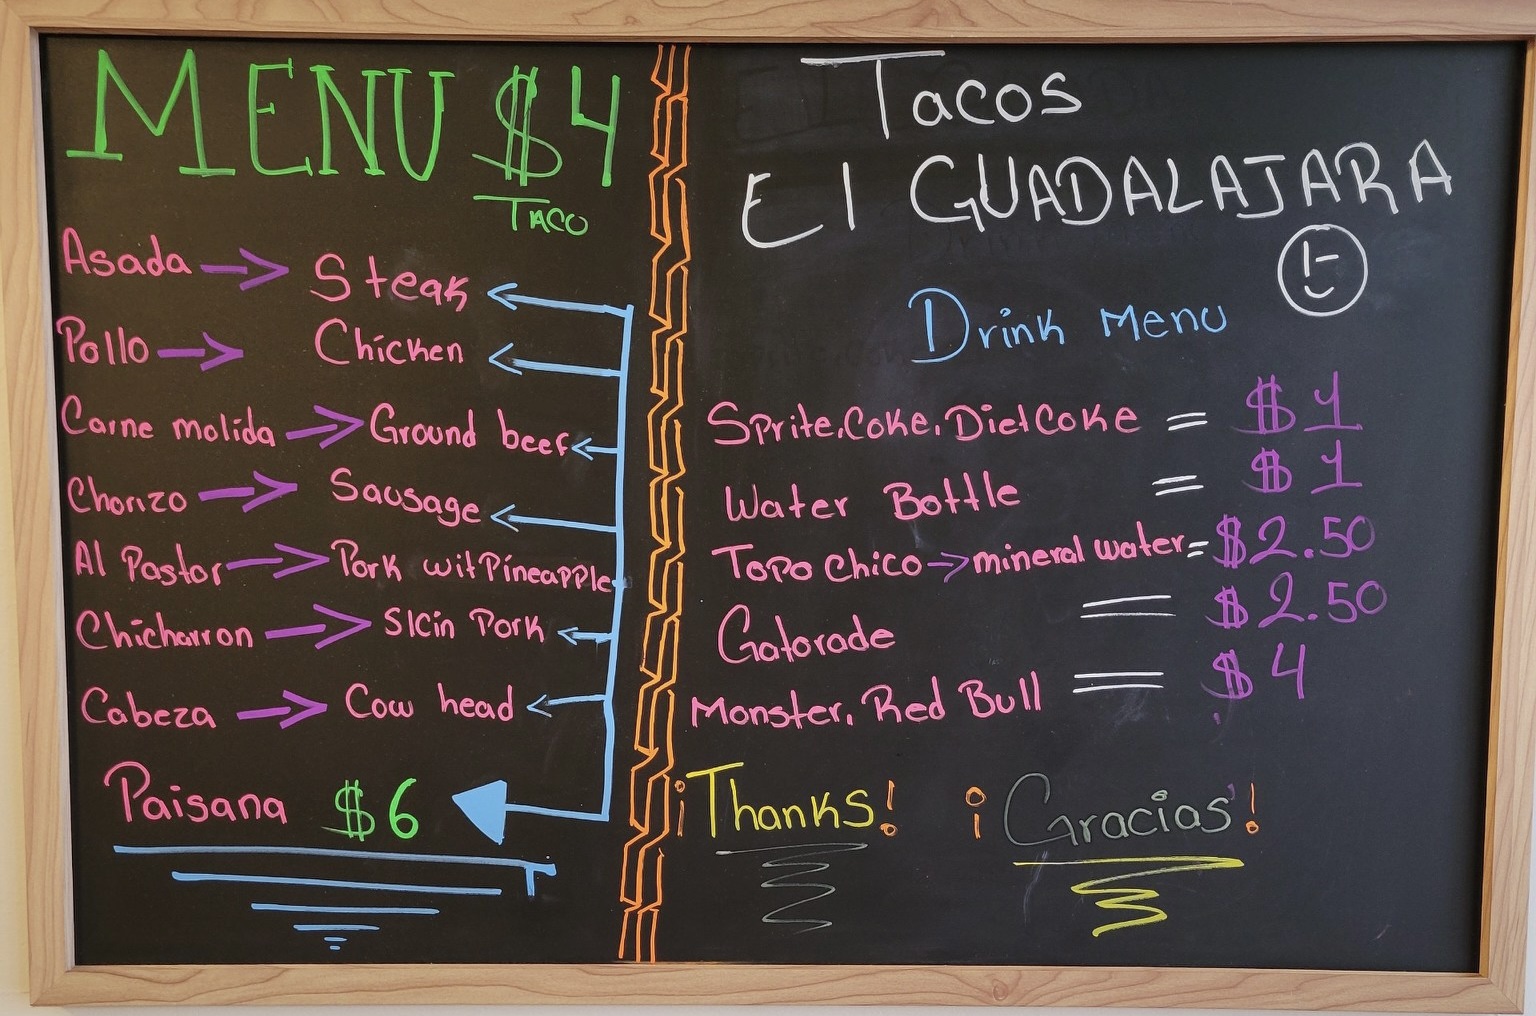 MENU $4
TACO
Asada → Steak
Pollo → Chicken
Carne molida → Ground beef
Chorizo → Sausage
Al Pastor → Pork wit Pineapple
Chicharron → Skin Pork
Cabeza → Cow head
Paisana $6
Tacos
El GUADALAJARA
Drink Menu
Sprite, Coke, Diet Coke = $1
Water Bottle = $1
Topo Chico → mineral water = $2.50
Gatorade = $2.50
Monster, Red Bull = $4
¡Thanks! ¡Gracias!